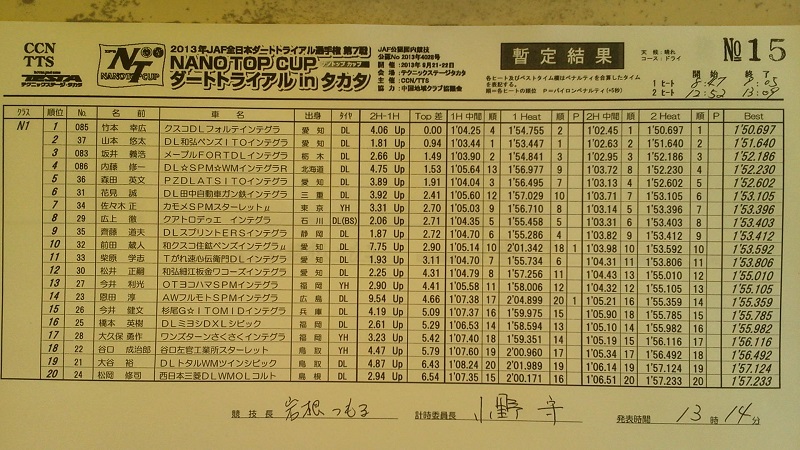 CCN
TTS
TESTA
テクニックステージタカタ
NT
NANOTOPCUP
2013年JAF全日本ダートトライアル選手権 第7戦
NANO TOP CUP ナノトップ カップ
ダートトライアル in タカタ
JAF公認国内競技
公認No 2013年4028号
開催日 : 2013年 9月21-22日
会 場 : テクニックステージタカタ
主 催 : CCN/TTS
協 力 : 中国地域クラブ協議会
暫定結果
各ヒート及びベストタイム順はペナルティを合算したタイムを表記する。
順=各ヒートの順位 P=パイロンペナルティ(+5秒)
天候 : 晴れ
コース : ドライ
№15
開始 終了
1ヒート 8:47 9:05
2ヒート 12:52 13:09
クラス 順位 No. 名前 車名 出身 タイヤ 2H-1H Top差 1H 中間 順 1 Heat 順 P 2H 中間 順 2 Heat 順 P Best
N1 1 085 竹本 幸広 クスコDLフォルテインテグラ 愛知 DL 4.06 Up 0.00 1'04.25 4 1'54.755 2 1'02.45 1 1'50.697 1 1'50.697
2 37 山本 悠太 DL和弘ペンズITOインテグラ 愛知 DL 1.81 Up 0.94 1'03.44 1 1'53.447 1 1'02.63 2 1'51.640 2 1'51.640
3 083 坂井 義浩 メープルFORTDLインテグラ 栃木 DL 2.66 Up 1.49 1'03.90 2 1'54.841 3 1'02.95 3 1'52.186 3 1'52.186
4 086 内藤 修一 DL☆SPM☆WMインテグラR 北海道 DL 4.75 Up 1.53 1'05.64 13 1'56.977 9 1'03.72 8 1'52.230 4 1'52.230
5 36 森田 英文 PZDLATSITOインテグラ 愛知 DL 3.89 Up 1.91 1'04.04 3 1'56.495 7 1'03.13 4 1'52.602 5 1'52.602
6 31 花見 誠 DL田中自動車ガン鉄インテグラ 三重 DL 3.92 Up 2.41 1'05.60 12 1'57.029 10 1'03.71 7 1'53.105 6 1'53.105
7 34 佐々木 正 カモメSPMスターレットμ 東京 YH 3.31 Up 2.70 1'05.03 9 1'56.710 8 1'03.14 5 1'53.396 7 1'53.396
8 29 広上 徹 クアトロデゥエ インテグラ 石川 DL(BS) 2.06 Up 2.71 1'04.35 5 1'55.458 5 1'03.31 6 1'53.403 8 1'53.403
9 35 斉藤 道夫 DLスプリントERSインテグラ 静岡 DL 1.87 Up 2.72 1'04.70 6 1'55.286 4 1'03.82 9 1'53.412 9 1'53.412
10 32 前田 蔵人 和クスコ住鉱ペンズインテグラμ 愛知 DL 7.75 Up 2.90 1'05.14 10 2'01.342 18 1 1'03.98 10 1'53.592 10 1'53.592
11 33 柴原 学志 Tがれ速心伝衛門DLインテグラ 愛知 DL 1.93 Up 3.11 1'04.70 7 1'55.734 6 1'04.31 12 1'53.808 11 1'53.808
12 30 松井 正嗣 和弘細江板金ワコーズインテグラ 愛知 DL 2.25 Up 4.31 1'04.79 8 1'57.256 11 1'04.43 13 1'55.010 12 1'55.010
13 27 今井 利光 OTヨコハマSPMインテグラ 福岡 YH 2.90 Up 4.41 1'05.58 11 1'58.006 12 1'04.32 11 1'55.105 13 1'55.105
14 23 恩田 淳 AWフルモトSPMインテグラ 広島 DL 9.54 Up 4.66 1'07.38 17 2'04.899 20 1 1'05.21 16 1'55.359 14 1'55.359
15 26 今井 健文 杉尾G☆ITOMIインテグラ 兵庫 DL 4.19 Up 5.09 1'07.37 16 1'59.975 15 1'05.90 18 1'55.785 15 1'55.785
16 25 橋本 英樹 DLミヨシDXLシビック 福岡 DL 2.61 Up 5.29 1'06.53 14 1'58.594 13 1'05.10 14 1'55.982 16 1'55.982
17 28 大久保 勇作 ワンズターンさくさくインテグラ 福岡 YH 3.23 Up 5.42 1'07.40 18 1'59.351 14 1'05.19 15 1'56.116 17 1'56.116
18 22 谷口 成治郎 谷口左官工業所スターレット 鳥取 YH 4.47 Up 5.79 1'07.60 19 2'00.960 17 1'05.34 17 1'56.492 18 1'56.492
19 21 大谷 裕 DLトタルWMツインシビック 鳥取 DL 4.87 Up 6.43 1'08.24 20 2'01.989 19 1'06.14 19 1'57.124 19 1'57.124
20 24 松岡 修司 西日本三菱DLWMOLコルト 島根 DL 2.94 Up 6.54 1'07.35 15 2'00.171 16 1'06.51 20 1'57.233 20 1'57.233
競技長 岩根 つもる 計時委員長 小野 守 発表時間 13時14分